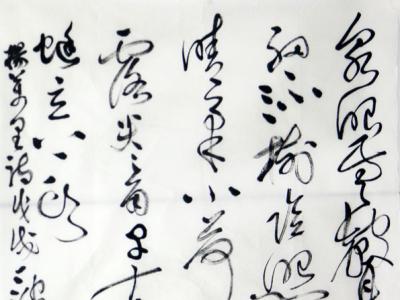 泉眼無聲惜
細流樹陰照
晴柔小荷
露尖尖角早有
蜓立上頭
楊萬里詩戊戌